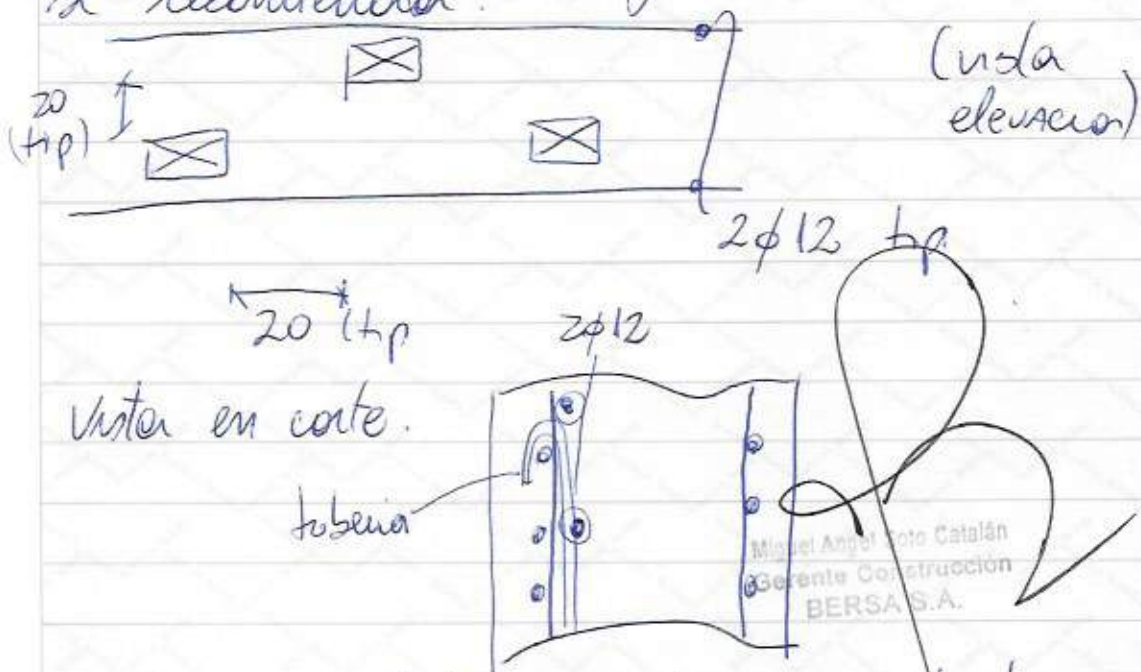 (vista
elevación)
20
(tip)
2φ12 tip
20 (tip
2φ12
Vista en corte.
tuberia
Miguel Angel Soto Catalán
Gerente Construcción
BERSA S.A.